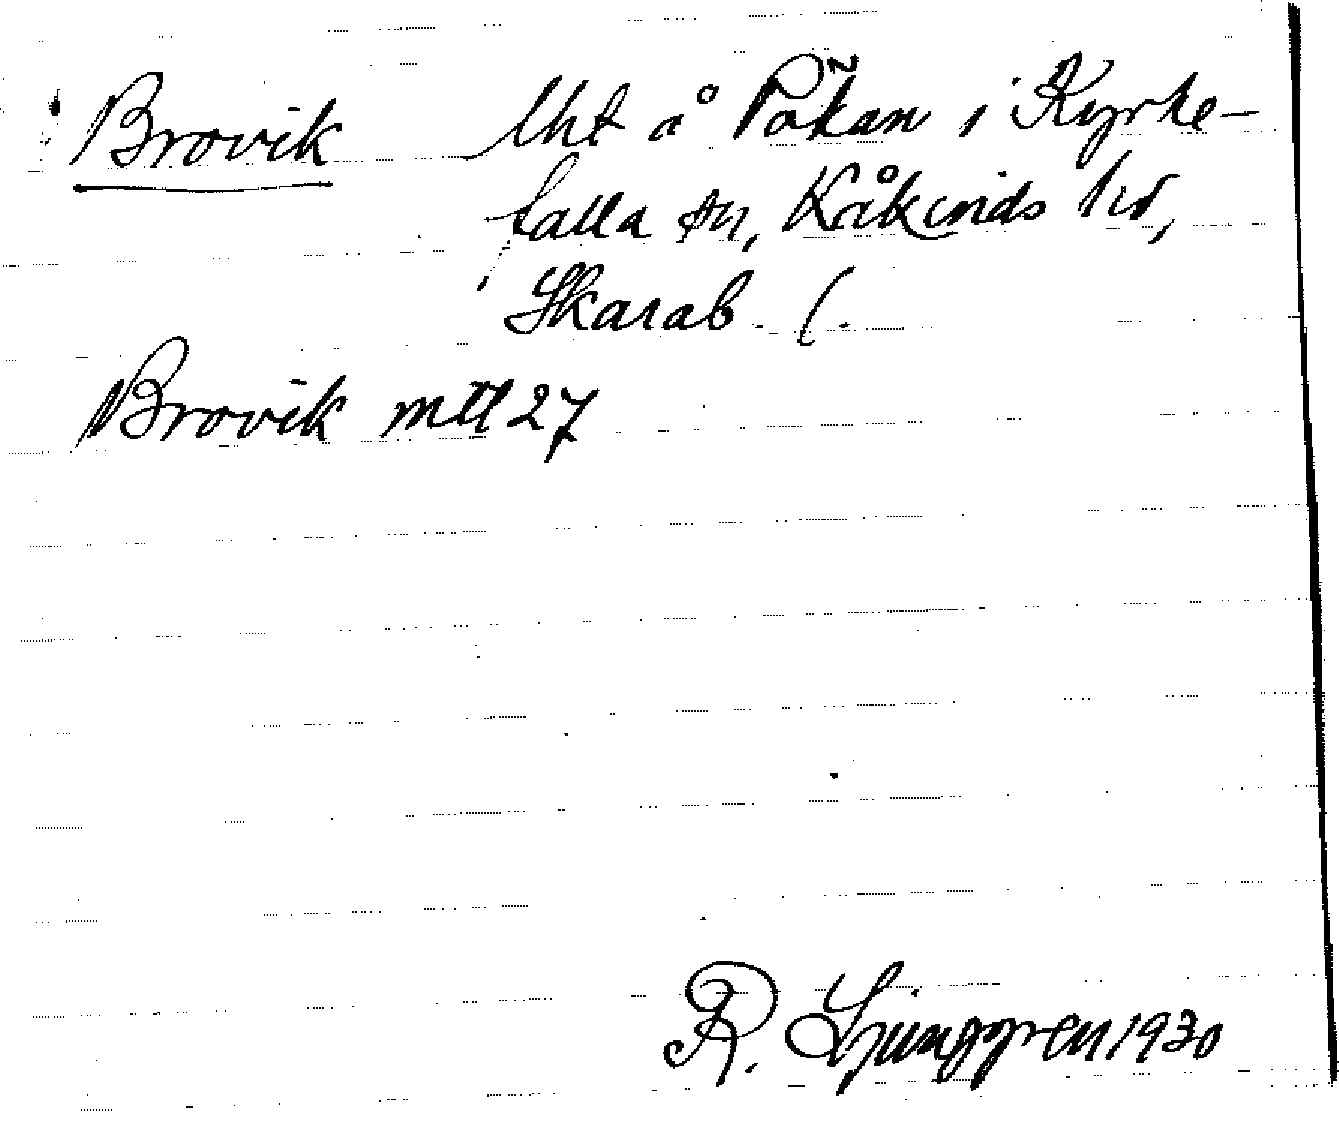 Brovik lht å Påkan i Kyrke-
falla sn, Kåkinds hd,
Skarab. l.
Brovik mtl 27
R. Ljunggren 1930